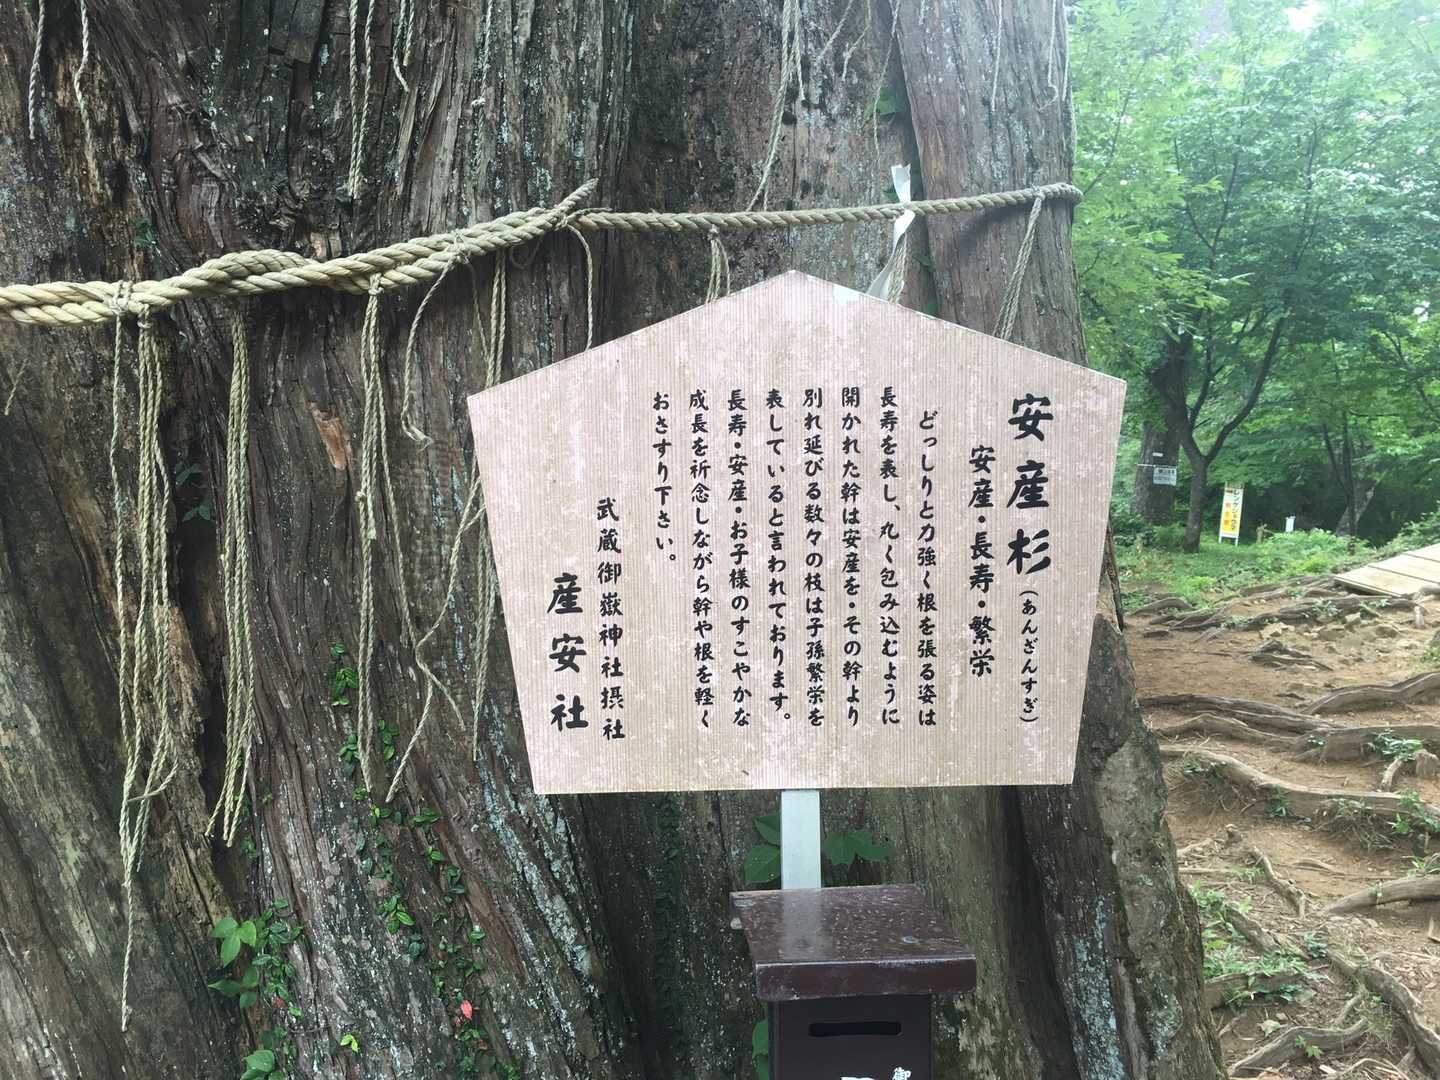 安産杉（あんざんすぎ）
安産・長寿・繁栄
どっしりと力強く根を張る姿は
長寿を表し、丸く包み込むように
開かれた幹は安産を・その幹より
別れ延びる数々の枝は子孫繁栄を
表していると言われております。
長寿・安産・お子様のすこやかな
成長を祈念しながら幹や根を軽く
おさすり下さい。
武蔵御嶽神社摂社
産安社
御
レンゲショウマ